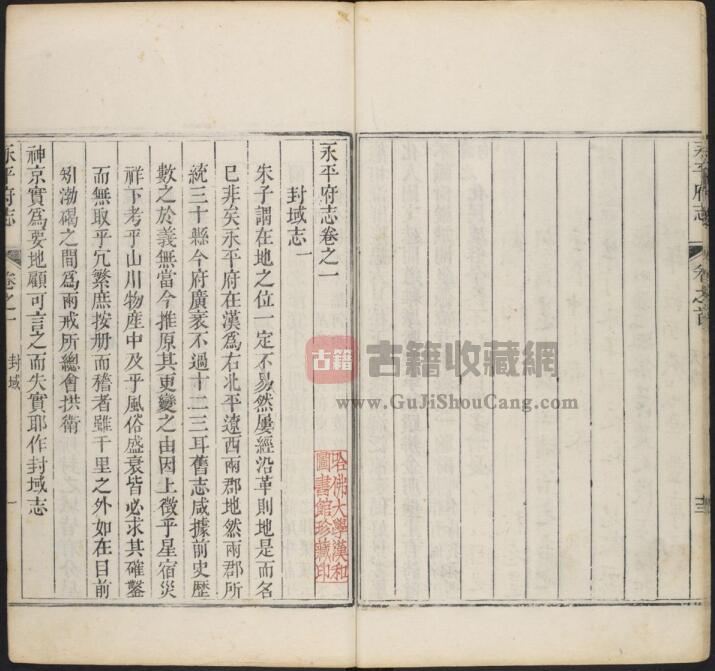 永平府志
卷之首
永平府志卷之一
封域志一
朱子謂在地之位一定不易然屢經沿革則地是而名
巳非矣永平府在漢爲右北平遼西兩郡地然兩郡所
統三十縣今府廣袤不過十二三耳舊志咸據前史歷
數之於義無當今推原其更變之由因上徵乎星宿災
祥下考乎山川物産中及乎風俗盛衰皆必求其確鑿
而無取乎冗繁庶按册而稽者雖千里之外如在目前
矧渤碣之間爲兩戒所總會拱衛
神京實爲要地顧可言之而失實耶作封域志
永平府志
卷之一
封域
一
哈佛大學漢和
圖書館珍藏印
古籍
古籍收藏網
www.GuJiShouCang.com